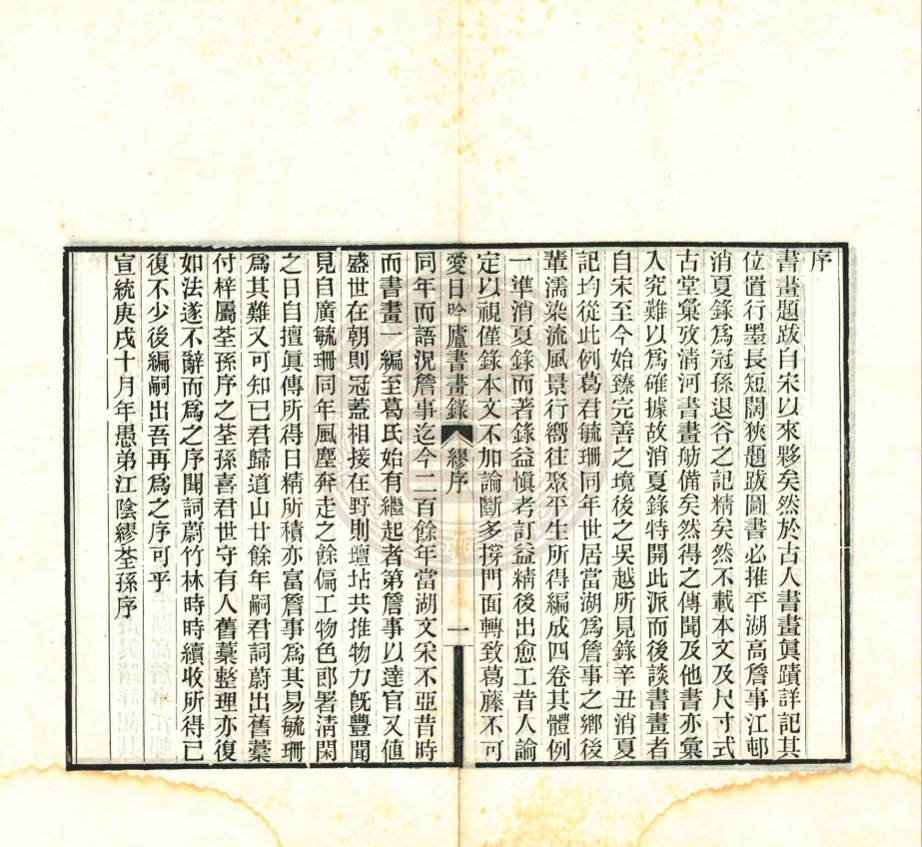 序
書畫題跋自宋以來夥矣然於古人書畫眞蹟詳記其
位置行墨長短闊狹題跋圖書必推平湖高詹事江邨
消夏錄爲冠孫退谷之記精矣然不載本文及尺寸式
古堂彙攷淸河書畫舫備矣然得之傳聞及他書亦彙
入究難以爲確據故消夏錄特開此派而後談書畫者
自宋至今始臻完善之境後之吳越所見錄辛丑消夏
記均從此例葛君毓珊同年世居當湖爲詹事之鄉後
輩濡染流風景行嚮往聚平生所得編成四卷其體例
一準消夏錄而著錄益愼考訂益精後出愈工昔人論
定以視僅錄本文不加論斷多撐門面轉致葛藤不可
愛日吟廬書畫錄 繆序 一
同年而語況詹事迄今二百餘年當湖文宋不亞昔時
而書畫一編至葛氏始有繼起者第詹事以達官又値
盛世在朝則冠蓋相接在野則壇坫共推物力旣豐聞
見自廣毓珊同年風塵奔走之餘偏工物色郎署淸閑
之日自擅眞傳所得日精所積亦富詹事爲其易毓珊
爲其難又可知已君歸道山廿餘年嗣君詞蔚出舊藁
付梓屬荃孫序之荃孫喜君世守有人舊藁整理亦復
如法遂不辭而爲之序聞詞蔚竹林時時續收所得已
復不少後編嗣出吾再爲之序可乎
宣統庚戌十月年愚弟江陰繆荃孫序